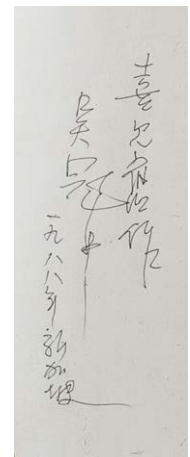 喜见舊作
吴冠中
一九八八年新加坡